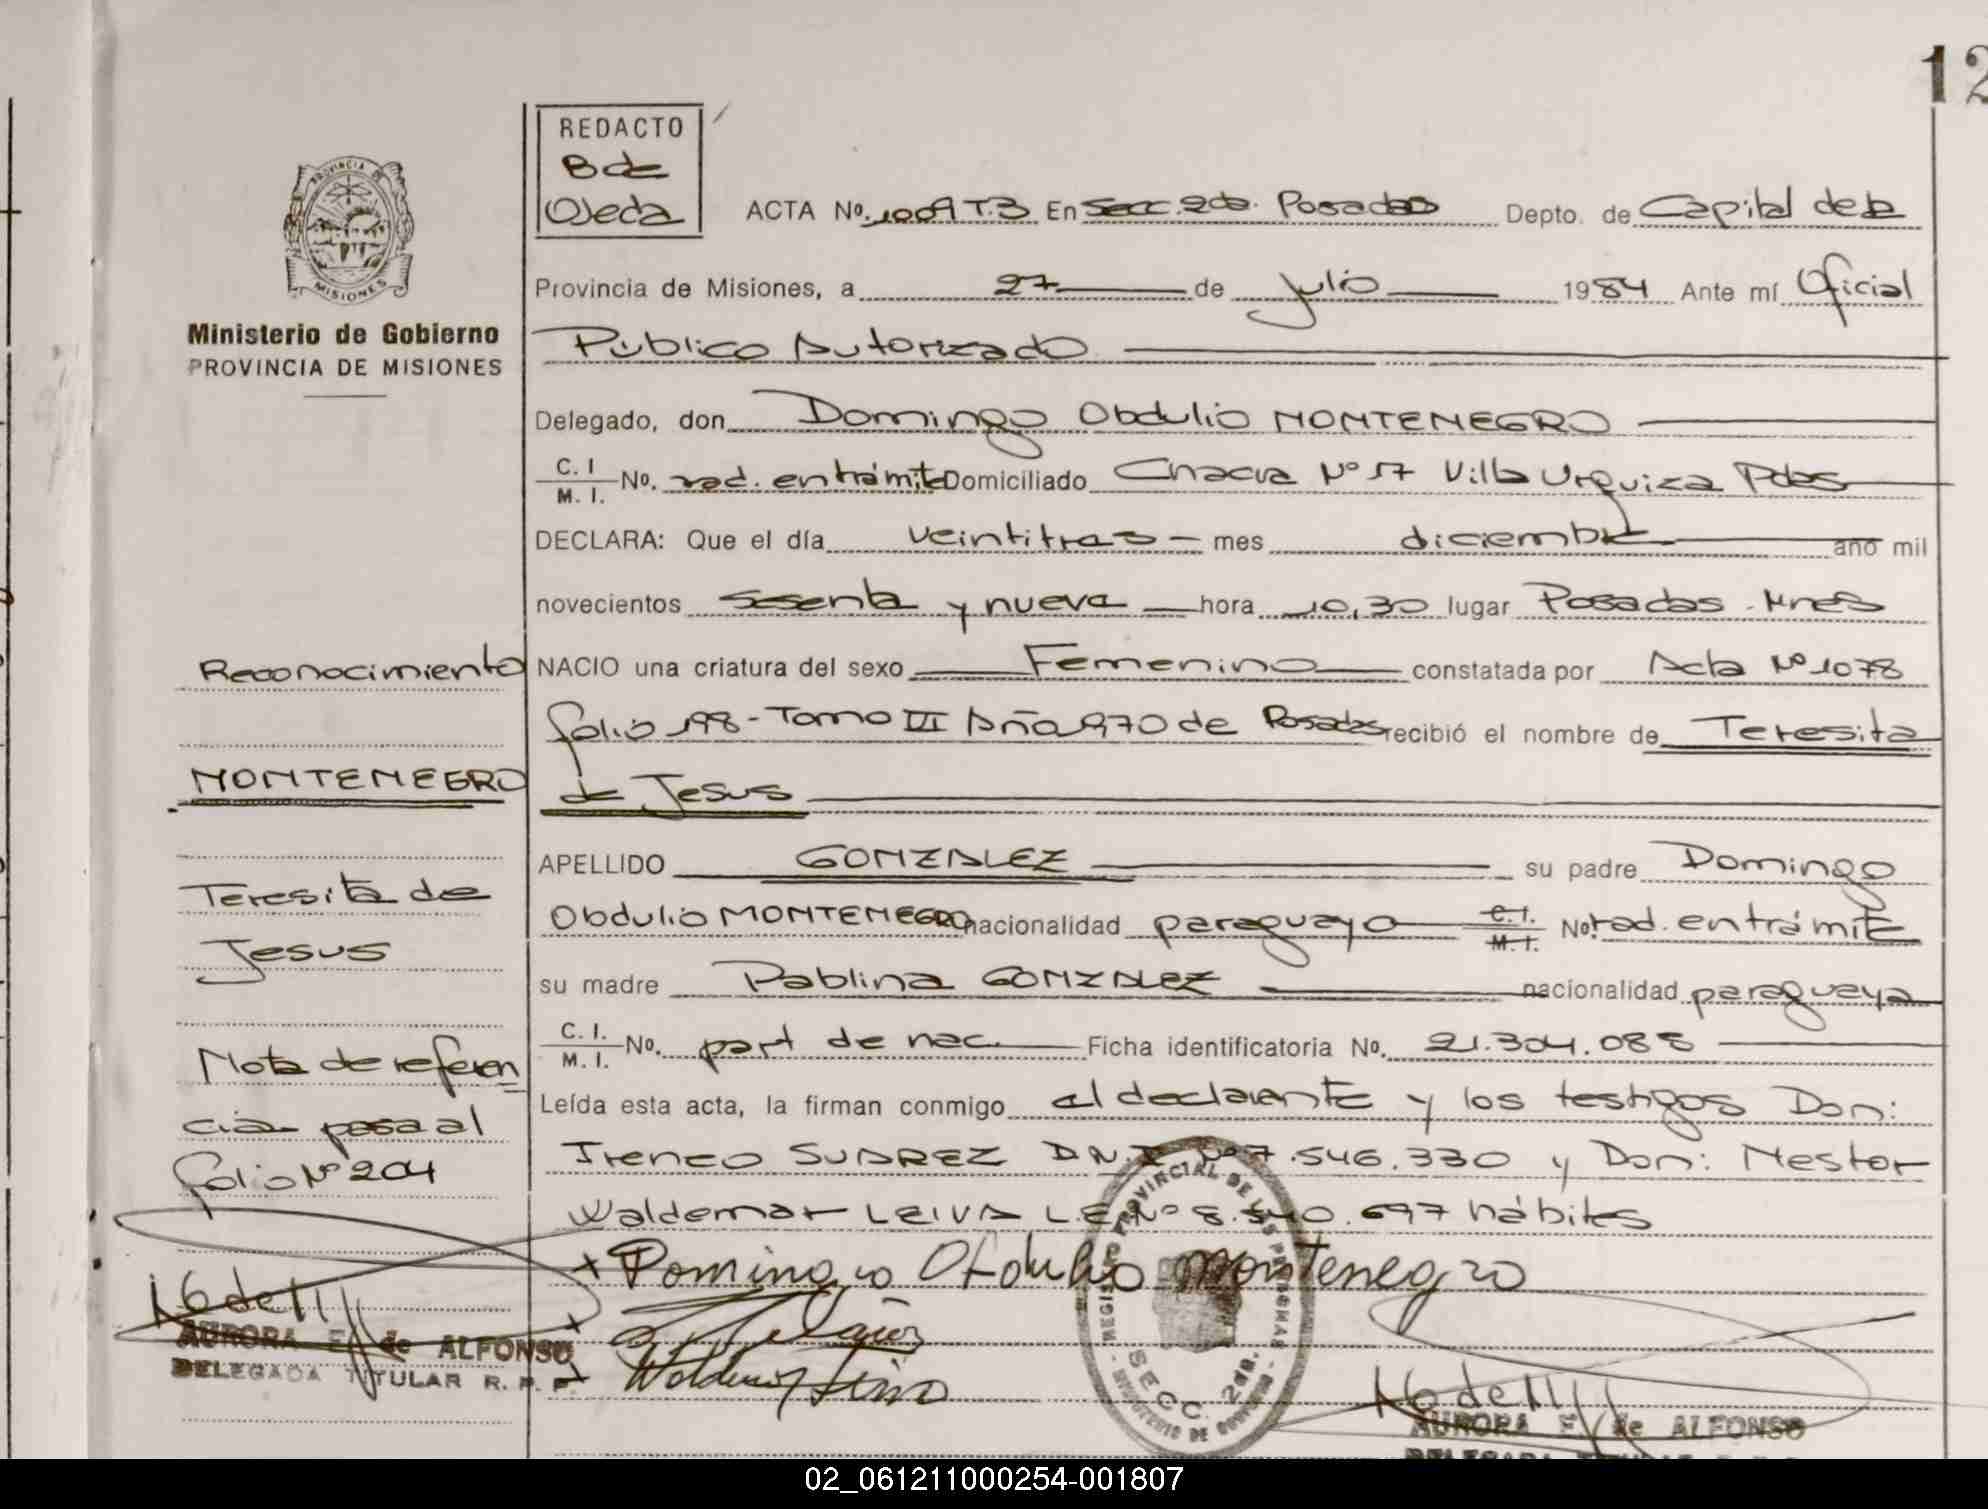 12
REDACTO
B de
Ojeda
ACTA No. 1009 T.3 En Secc. 2da. Posadas Depto. de Capital de la
PROVINCIA DE
MISIONES
Ministerio de Gobierno
PROVINCIA DE MISIONES
Provincia de Misiones, a 27 de julio 1984 Ante mí Oficial
Público Autorizado
Delegado, don Domingo Obdulio MONTENEGRO
C. I
M. I. No. rad. en trámite Domiciliado Chacra Nº 57 Villa Urquiza Pdas
DECLARA: Que el día veintitres mes diciembre año mil
novecientos sesenta y nueve hora 10,30 lugar Posadas - Mnes
NACIO una criatura del sexo Femenino constatada por Acta Nº 1078
folio 198 - Tomo III Año 970 de Posadas recibió el nombre de Teresita
de Jesus
APELLIDO GONZALEZ su padre Domingo
Obdulio MONTENEGRO nacionalidad paraguayo C. I. M. I. No. rad. en trámite
su madre Pablina GONZALEZ nacionalidad paraguaya
C. I.
M. I. No. part de nac. Ficha identificatoria No. 21.304.088
Leída esta acta, la firman conmigo el declarante y los testigos Don:
Ireneo SUAREZ D.N.I Nº 7.546.330 y Don: Nestor
Waldemar LEIVA L.E. Nº 8.540.697 hábiles
Domingo Obdulio Montenegro
Reconocimiento
MONTENEGRO
Teresita de
Jesus
Nota de referen
cia pasa al
folio Nº 204
AURORA E. de ALFONSO
DELEGADA TITULAR R. P. P.
REGISTRO PROVINCIAL DE LAS PERSONAS
SECC. 2da.
MINISTERIO DE GOBIERNO
AURORA E. de ALFONSO
02_061211000254-001807